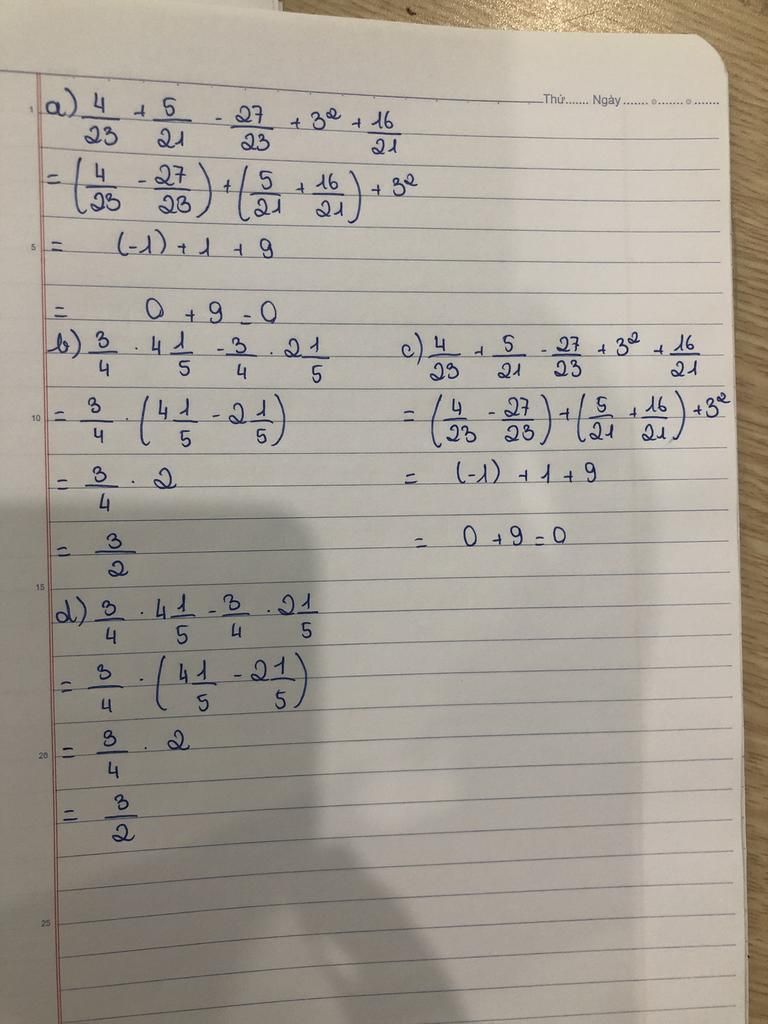 Thứ....... Ngày ....... o ....... o .......
a) 4/23 + 5/21 - 27/23 + 3² + 16/21
= (4/23 - 27/23) + (5/21 + 16/21) + 3²
5
= (-1) + 1 + 9
= 0 + 9 = 0
b) 3/4 . 4 1/5 - 3/4 . 2 1/5
10
= 3/4 . (4 1/5 - 2 1/5)
= 3/4 . 2
= 3/2
c) 4/23 + 5/21 - 27/23 + 3² + 16/21
= (4/23 - 27/23) + (5/21 + 16/21) + 3²
= (-1) + 1 + 9
= 0 + 9 = 0
15
d) 3/4 . 4 1/5 - 3/4 . 2 1/5
= 3/4 . (4 1/5 - 2 1/5)
20
= 3/4 . 2
= 3/2
25